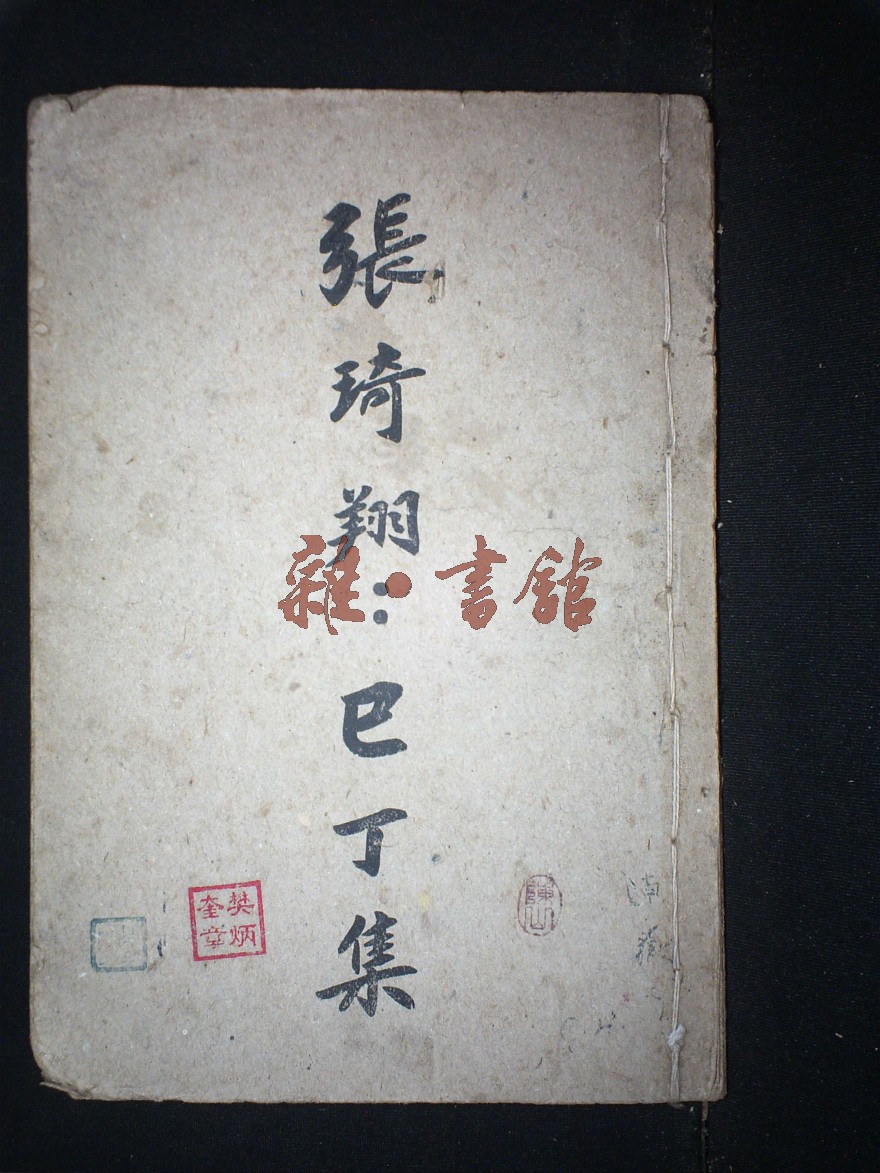 張琦翔：巳丁集
雜·書館
樊炳
奎章
陳山